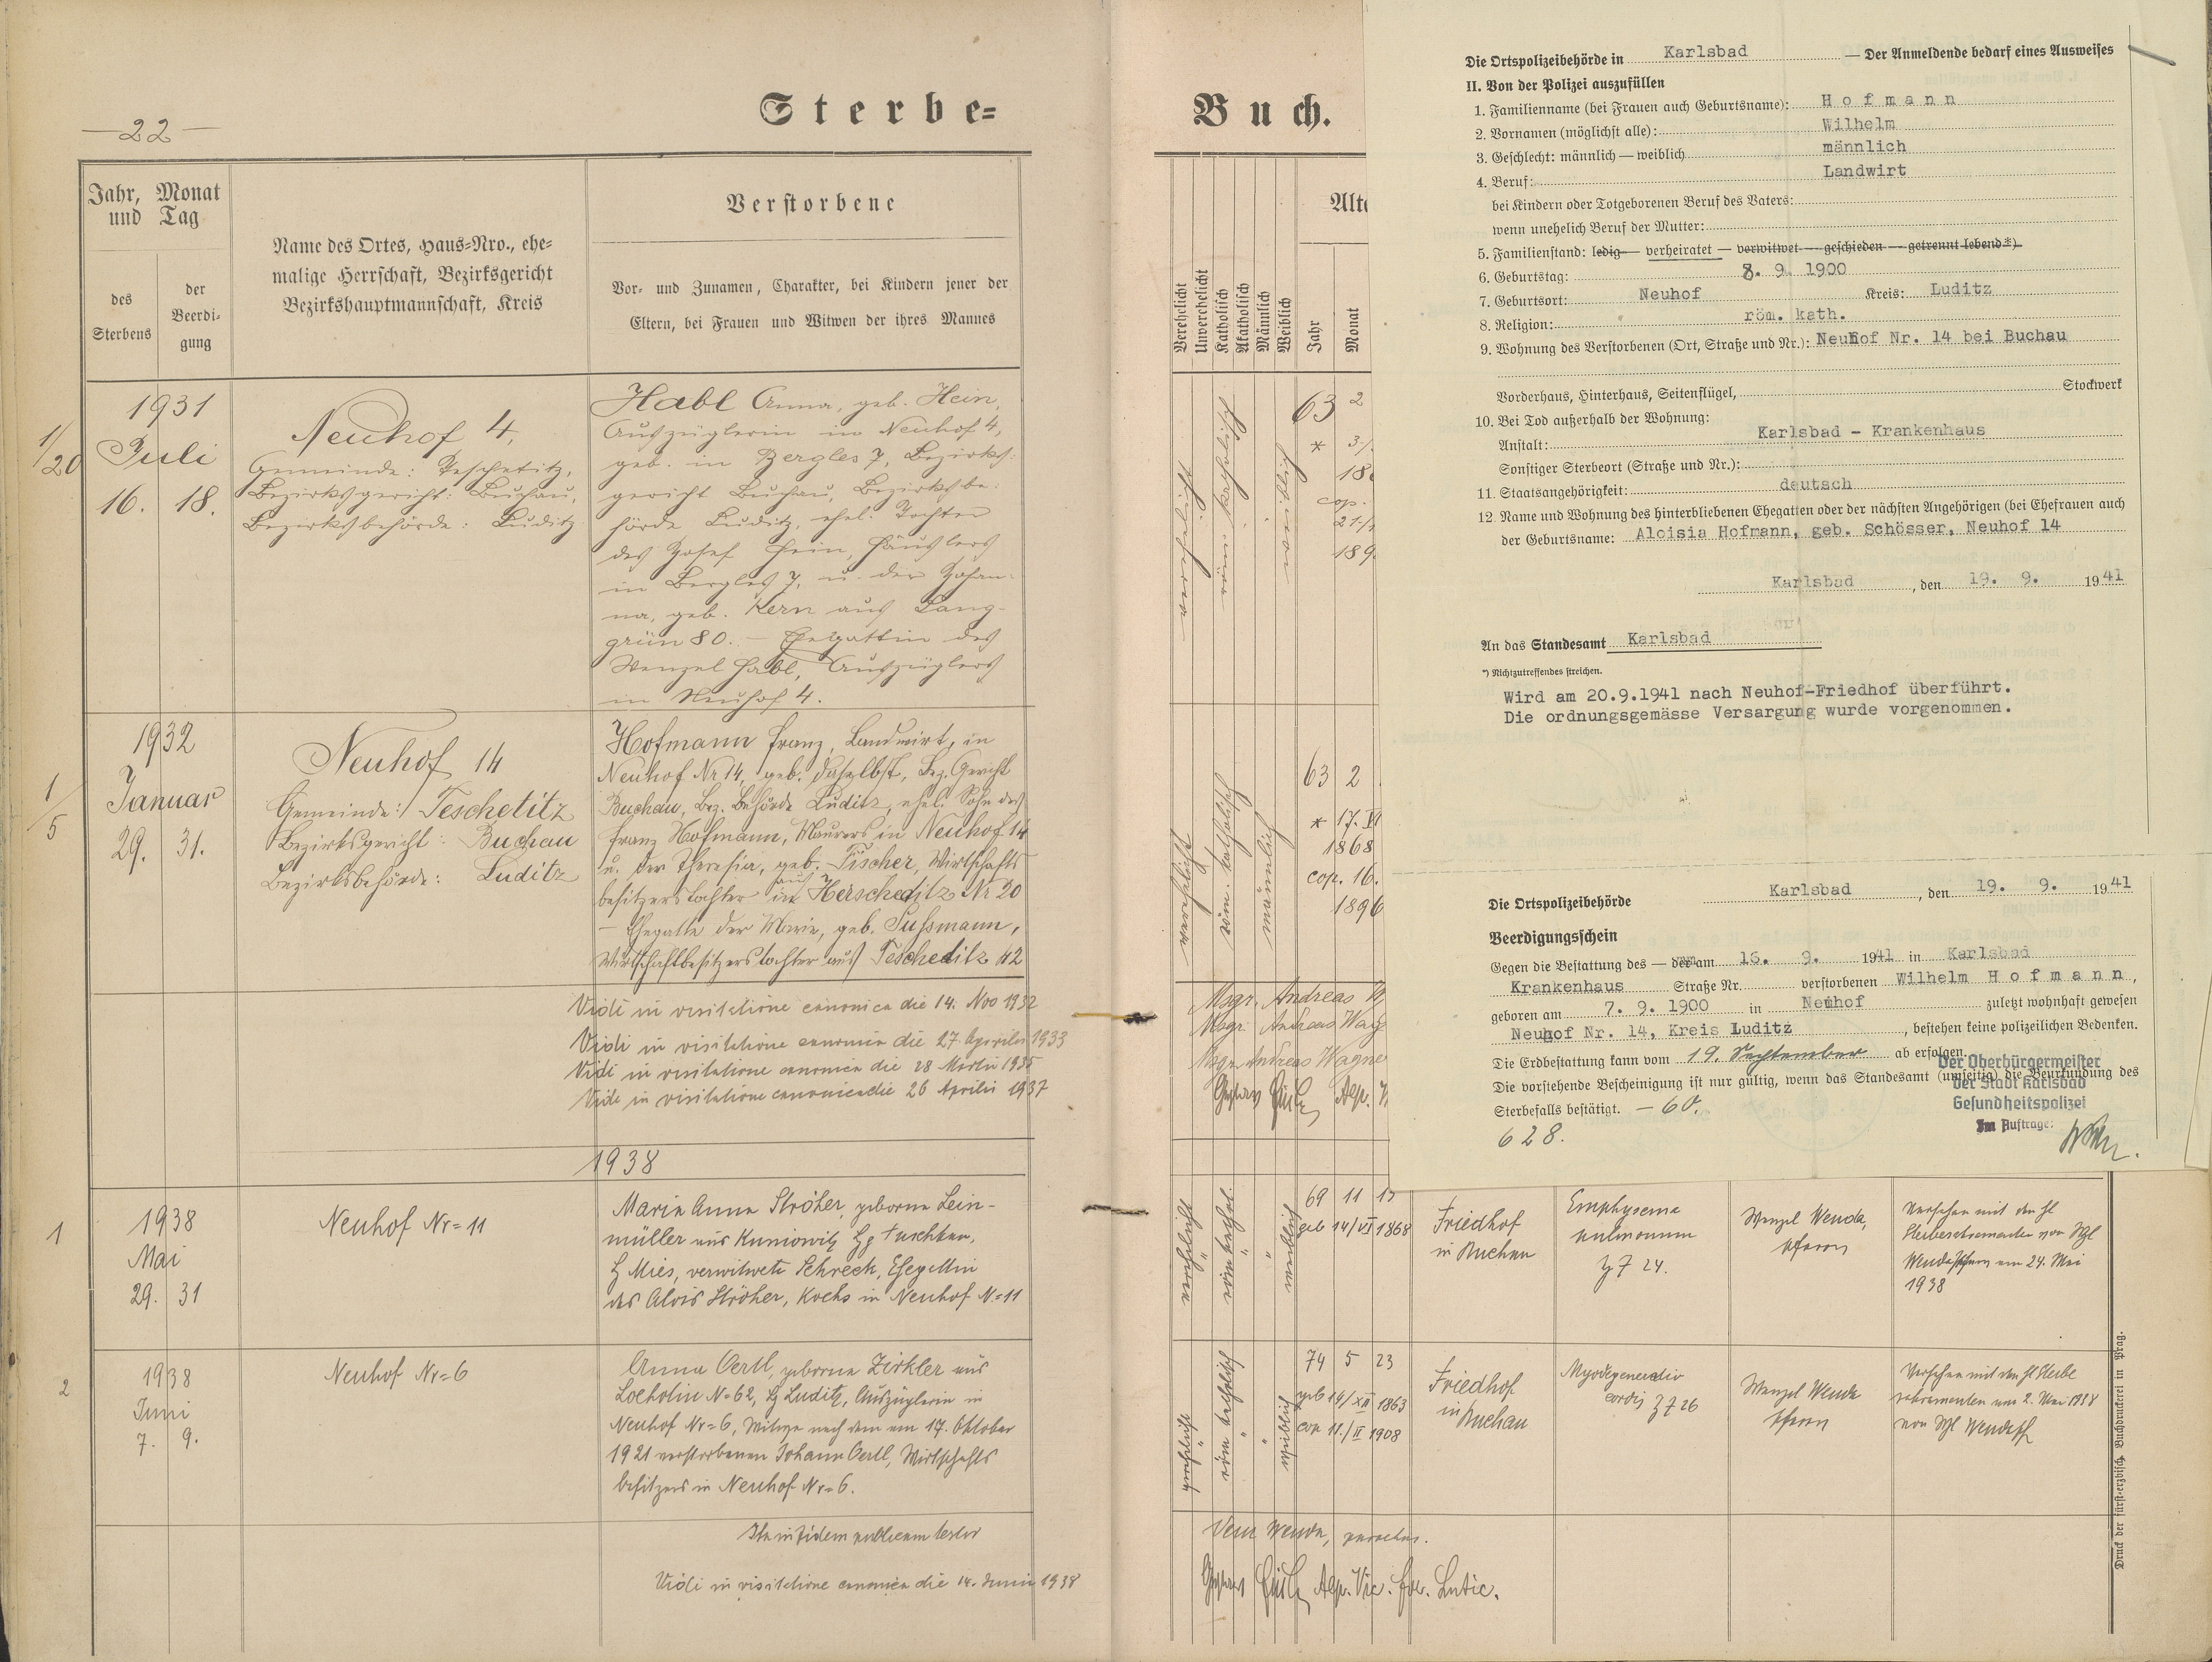 —22—
Sterbe=
Jahr, Monat
und Tag
des
Sterbens
der
Beerdi-
gung
Name des Ortes, Haus=Nro., ehe=
malige Herrschaft, Bezirksgericht
Bezirkshauptmannschaft, Kreis
Verstorbene
Vor- und Zunamen, Charakter, bei Kindern jener der
Eltern, bei Frauen und Witwen der ihres Mannes
1/20
1931
Juli
16. 18.
Neuhof 4,
Gemeinde: Teschetitz,
Bezirksgericht: Buchau,
Bezirksbehörde: Luditz
Habl Anna, geb. Hein,
Auszüglerin in Neuhof 4,
geb. in Bergles 7, Bezirks-
gericht Buchau, Bezirksbe-
hörde Luditz, ehel. Tochter
des Josef Hein, Häuslers
in Bergles 7, u. der Johan-
na, geb. Kern aus Lang-
grün 80. — Ehegattin des
Wenzel Habl, Auszüglers
in Neuhof 4.
1/5
1932
Januar
29. 31.
Neuhof 14
Gemeinde: Teschetitz
Bezirksgericht: Buchau
Bezirksbehörde: Luditz
Hofmann Franz, Landwirt, in
Neuhof Nr 14, geb. daselbst, Bez. Gericht
Buchau, Bez. Behörde Luditz, ehel. Sohn des
Franz Hofmann, Maurers in Neuhof 14
u. der Theresia, geb. Fischer, Wirtschafts
besitzerstochter aus Herscheditz Nr 20
— Ehegatte der Marie, geb. Fussmann,
Wirtschaftbesitzerstochter aus Tescheditz 42
Vidi in visitatione canonica die 14. Nov 1932
Vidi in visitatione canonica die 27. Aprilis 1933
Vidi in visitatione canonica die 28 Martii 1935
Vidi in visitatione canonica die 26 Aprilis 1937
1938
1
1938
Mai
29. 31
Neuhof Nr=11
Maria Anna Ströher, geborene Lein-
müller aus Kuniowitz
Mies, verwitwete Schreck, Ehegattin
des Alois Ströher, Kochs in Neuhof N=11
2
1938
Juni
7. 9.
Neuhof Nr=6
Anna Oertl, geborene Zirkler aus
Locholin N=62, Luditz, Auszüglerin in
Neuhof Nr=6, Witwe nach dem am 17. Oktober
1921 verstorbenen Johann Oertl, Wirtschafts
besitzers in Neuhof Nr=6.
Ita in fidem publicam testor
Vidi in visitatione canonica die 14. Junii 1938
Buch.
Verehelicht
Unverehelicht
Katholisch
Akatholisch
Männlich
Weiblich
Jahr
Monat
verehelicht
röm. katholisch
weiblich
63 2
*
cop.
verehelicht
röm. katholisch
männlich
63 2
* 17.
1868
cop. 16.
1896
Msgr. Andreas
Msgr. Andreas Wag
Msgr. Andreas Wagne
verehelicht
röm kathol.
weiblich
69 11
geb 14/VI 1868
Friedhof
in Buchau
Emphysema
pulmonum
Z 7 24.
Wenzel Wenda,
Pfarrer
Versehen mit den hl
Sterbesakramenten von Wzl
Wenda Pfarrer am 24. Mai
1938
verehelicht
röm katholisch
weiblich
74 5 23
geb 14/XII 1863
cop 11./II 1908
Friedhof
in Buchau
Myodegeneratio
cordis Z 7 26
Wenzel Wenda
Pfarrer
Versehen mit den hl Sterbe
sakramenten am 2. Mai 1938
von Wzl Wenda
Wenda, parochus.
Druck der fürst-erzbisch. Buchdruckerei in Prag.
Die Ortspolizeibehörde in Karlsbad — Der Anmeldende bedarf eines Ausweises
II. Von der Polizei auszufüllen
1. Familienname (bei Frauen auch Geburtsname): Hofmann
2. Vornamen (möglichst alle): Wilhelm
3. Geschlecht: männlich — weiblich männlich
4. Beruf: Landwirt
bei Kindern oder Totgeborenen Beruf des Vaters:
wenn unehelich Beruf der Mutter:
5. Familienstand: ledig — verheiratet — verwitwet — geschieden — getrennt lebend*)
6. Geburtstag: 8. 9. 1900
7. Geburtsort: Neuhof Kreis: Luditz
8. Religion: röm. kath.
9. Wohnung des Verstorbenen (Ort, Straße und Nr.): Neuhof Nr. 14 bei Buchau
Vorderhaus, Hinterhaus, Seitenflügel, Stockwerk
10. Bei Tod außerhalb der Wohnung:
Anstalt: Karlsbad - Krankenhaus
Sonstiger Sterbeort (Straße und Nr.):
11. Staatsangehörigkeit: deutsch
12 Name und Wohnung des hinterbliebenen Ehegatten oder der nächsten Angehörigen (bei Ehefrauen auch
der Geburtsname: Aloisia Hofmann, geb. Schösser, Neuhof 14
Karlsbad, den 19. 9. 1941
An das Standesamt Karlsbad
*) Nichtzutreffendes streichen.
Wird am 20.9.1941 nach Neuhof-Friedhof überführt.
Die ordnungsgemässe Versargung wurde vorgenommen.
Karlsbad, den 19. 9. 1941
Die Ortspolizeibehörde
Beerdigungsschein
Gegen die Bestattung des — der am 16. 9. 1941 in Karlsbad
Krankenhaus Straße Nr. verstorbenen Wilhelm Hofmann,
geboren am 7. 9. 1900 in Neuhof zuletzt wohnhaft gewesen
Neuhof Nr. 14, Kreis Luditz, bestehen keine polizeilichen Bedenken.
Die Erdbestattung kann vom 19. September ab erfolgen.
Die vorstehende Bescheinigung ist nur gültig, wenn das Standesamt (umseitig) die Beurkundung des
Sterbefalls bestätigt. — 60.
628.
Der Oberbürgermeister
der Stadt Karlsbad
Gesundheitspolizei
Im Auftrage: